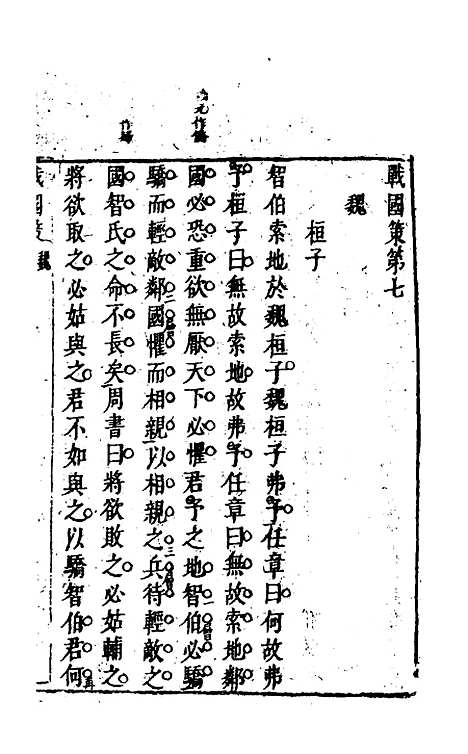 戰國策第七
魏
桓子
智伯索地於魏桓子魏桓子弗予任章曰何故弗
予桓子曰無故索地故弗予任章曰無故索地鄰
國必恐重欲無厭天下必懼君予之地智伯必驕
驕而輕敵鄰國懼而相親以相親之兵待輕敵之
國智氏之命不長矣周書曰將欲敗之必姑輔之
將欲取之必姑與之君不如與之以驕智伯君何